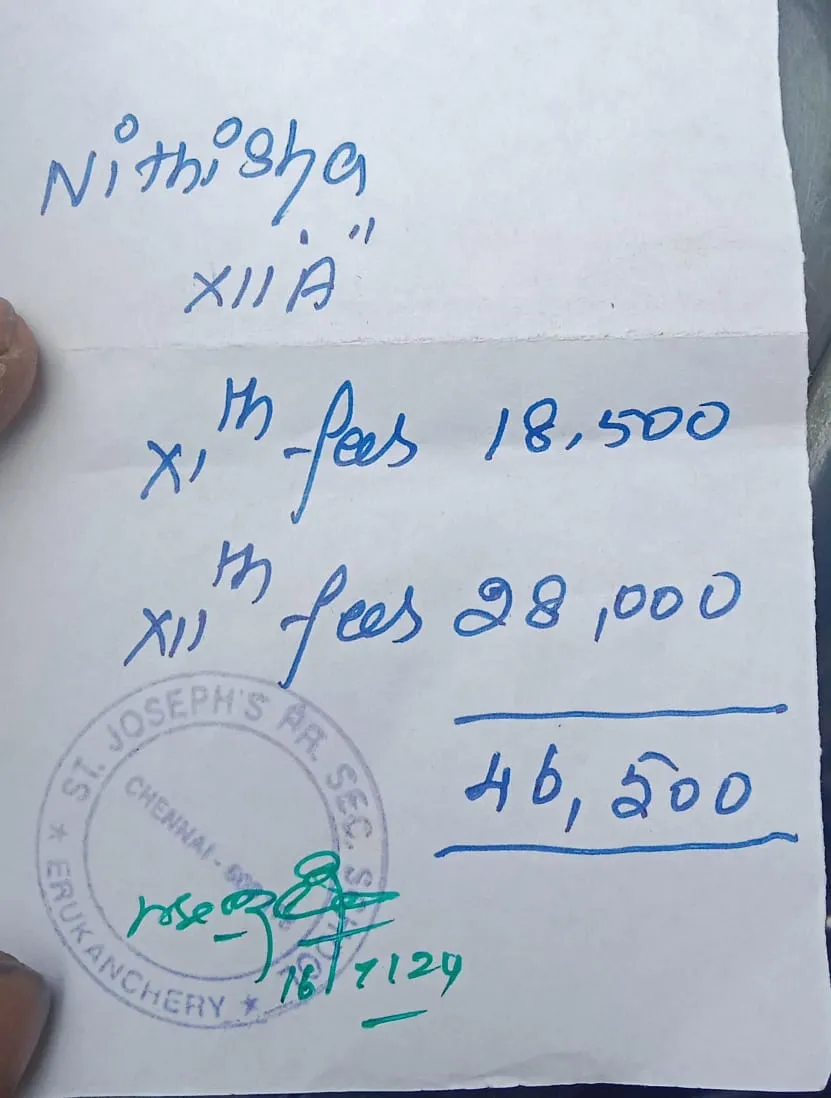 Nithisha
XII "A"
XIth fees 18,500
XIIth fees 28,000
46,500
ST. JOSEPH'S HR. SEC. SCHOOL
CHENNAI - 600
★ ERUKANCHERY ★
16/7/24